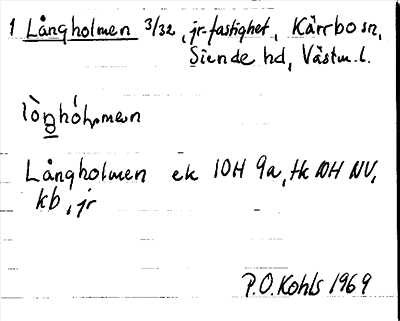 1 Långholmen 3/32, jr-fastighet, Kärrbo sn,
Siende hd, Västm. l.
Långholmen ek 10H 9a, tk 10H NV,
kb, jr
P.O. Kohls 1969